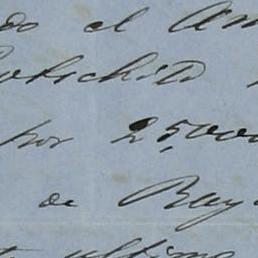 do el Am
Rotschild
por 25,000
de Bay
ultimo